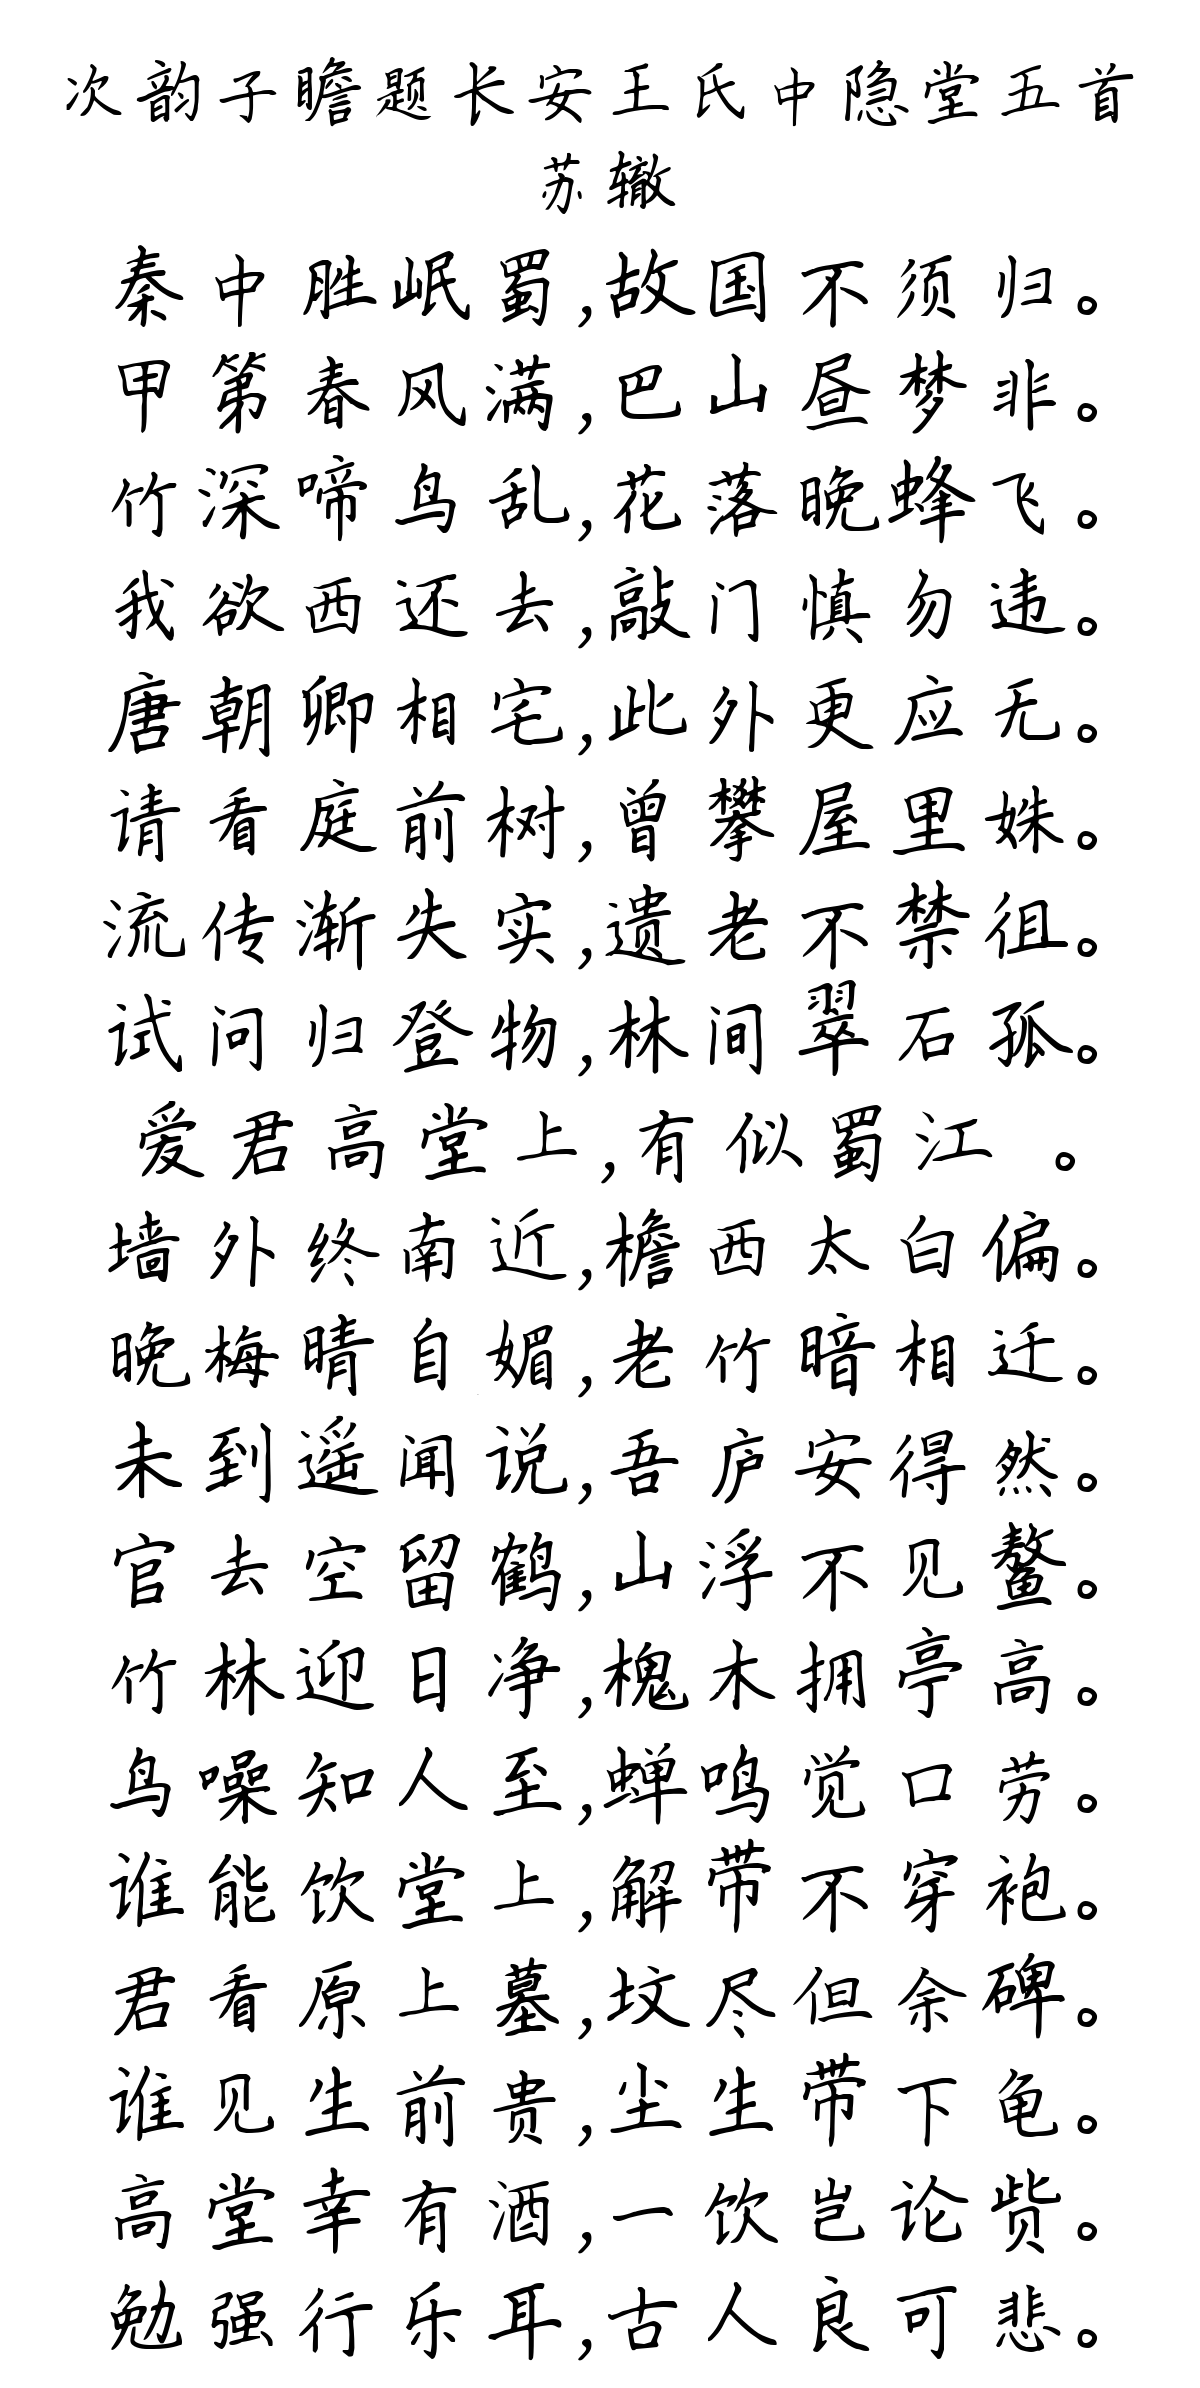 次韵子瞻题长安王氏中隐堂五首
苏辙
秦中胜岷蜀,故国不须归。
甲第春风满,巴山昼梦非。
竹深啼鸟乱,花落晚蜂飞。
我欲西还去,敲门慎勿违。
唐朝卿相宅,此外更应无。
请看庭前树,曾攀屋里姝。
流传渐失实,遗老不禁徂。
试问归登物,林间翠石孤。
爱君高堂上,有似蜀江 。
墙外终南近,檐西太白偏。
晚梅晴自媚,老竹暗相迁。
未到遥闻说,吾庐安得然。
官去空留鹤,山浮不见鳌。
竹林迎日净,槐木拥亭高。
鸟噪知人至,蝉鸣觉口劳。
谁能饮堂上,解带不穿袍。
君看原上墓,坟尽但余碑。
谁见生前贵,尘生带下龟。
高堂幸有酒,一饮岂论赀。
勉强行乐耳,古人良可悲。